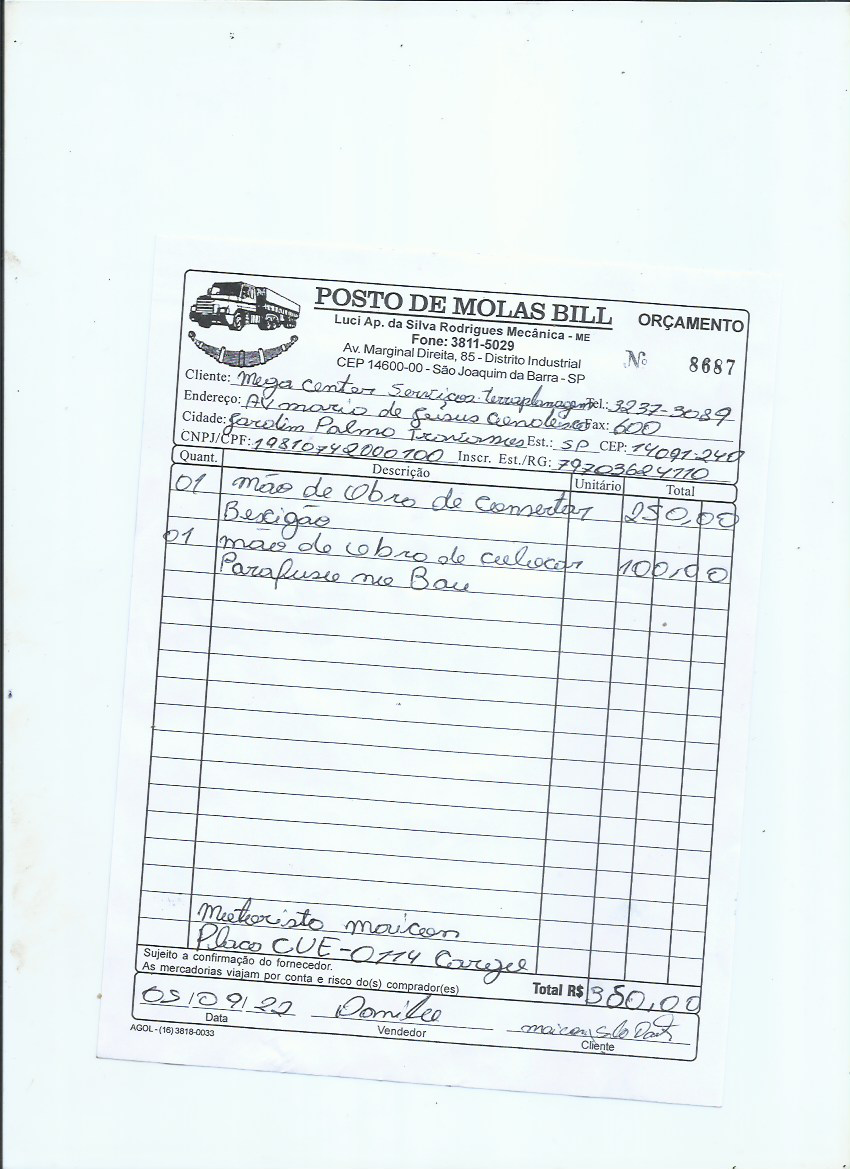 POSTO DE MOLAS BILL
ORÇAMENTO
Luci Ap. da Silva Rodrigues Mecânica - ME
Fone: 3811-5029
Nº 8687
Av. Marginal Direita, 85 - Distrito Industrial
CEP 14600-00 - São Joaquim da Barra - SP
Cliente: Mega Center Serviços terraplanagem Tel.: 3237-3089
Endereço: AV mario de Jesus Fax: 600
Cidade: Jardim Palmo Est.: SP CEP: 14091-240
CNPJ/CPF: 19810742000100 Inscr. Est./RG: 79703624110
Quant. Descrição Unitário Total
01 mão de Obro de Consertar 250,00
Bexigão
01 mão de obro de colocar 100,00
Parafuso no Bau
Motoristo maicon
Placo CUE-0114
Sujeito a confirmação do fornecedor.
As mercadorias viajam por conta e risco do(s) comprador(es)
Total R$ 350,00
05/09/22
Data Vendedor Cliente
AGOL - (16) 3818-0033